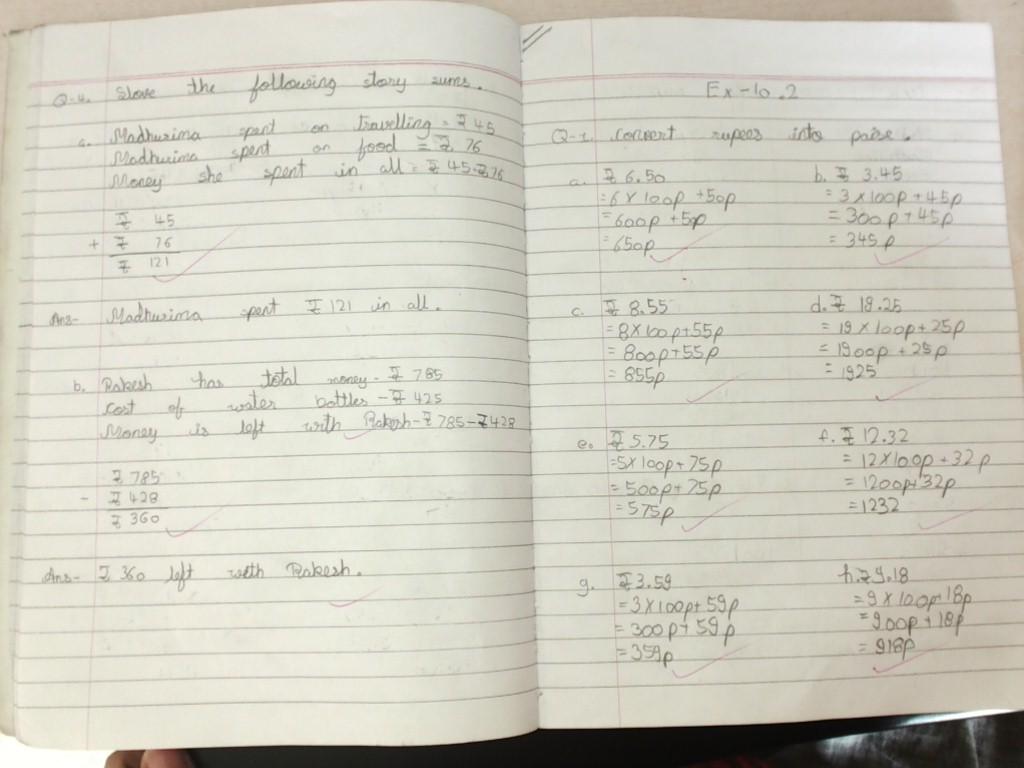 Q-4. Slove the following story sums.
a. Madhurima spent on travelling = ₹ 45
Madhurima spent on food = ₹ 76
Money she spent in all = ₹ 45-₹76
₹ 45
+ ₹ 76
₹ 121
Ans- Madhurima spent ₹ 121 in all.
b. Rakesh has total money - ₹ 785
Cost of water bottles - ₹ 425
Money is left with Rakesh - ₹ 785-₹428
₹ 785
- ₹ 428
₹ 360
Ans- ₹ 360 left with Rakesh.
Ex-10.2
Q-1. Convert rupees into paise.
a. ₹ 6.50
=6 X 100p +50p
=600p +50p
=650p
b. ₹ 3.45
= 3 X 100p + 45p
= 300p + 45p
= 345 p
c. ₹ 8.55
=8X100p+55p
= 800p+55p
= 855p
d. ₹ 19.25
= 19 X 100p+ 25p
= 1900p + 25p
= 1925
e. ₹ 5.75
=5X100p+75p
= 500p+75p
=575p
f. ₹ 12.32
= 12X100p + 32p
= 1200p+32p
=1232
g. ₹3.59
=3X100p+59p
= 300p+59p
=359p
h. ₹9.18
=9 X 100p+18p
=900p+18p
= 918p